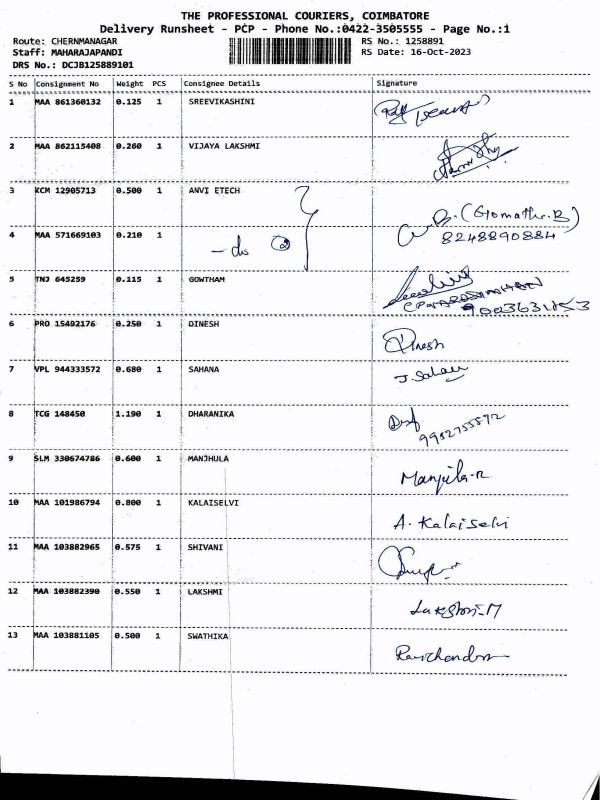 THE PROFESSIONAL COURIERS, COIMBATORE
Delivery Runsheet - PCP - Phone No.:0422-3505555 - Page No.:1
Route: CHERNMANAGAR RS No.: 1258891
Staff: MAHARAJAPANDI RS Date: 16-Oct-2023
DRS No.: DCJB125889101
S No Consignment No Weight PCS Consignee Details Signature
1 MAA 861360132 0.125 1 SREEVIKASHINI
2 MAA 862115408 0.260 1 VIJAYA LAKSHMI
3 KCM 12905713 0.500 1 ANVI ETECH
(Gomathi.B)
4 MAA 571669103 0.210 1 - do 8248890884
5 TNJ 645259 0.115 1 GOWTHAM
6 PRO 15492176 0.250 1 DINESH Dinesh
7 VPL 944333572 0.680 1 SAHANA J. Sahana
8 TCG 148450 1.190 1 DHARANIKA
9 SLM 330674786 0.600 1 MANJHULA Manjula.R
10 MAA 101986794 0.800 1 KALAISELVI A. Kalaiselvi
11 MAA 103882965 0.575 1 SHIVANI
12 MAA 103882390 0.550 1 LAKSHMI Lakshmi.M
13 MAA 103881105 0.500 1 SWATHIKA Ravichandran